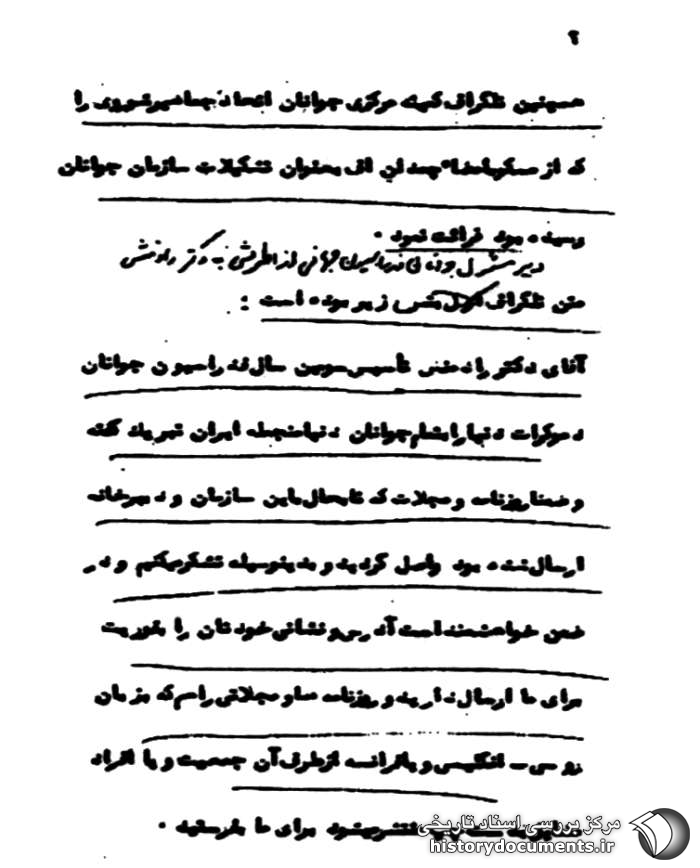 ۲
همچنین تلگراف کمیته مرکزی جوانان اتحاد جماهیر شوروی را
که از بعنوان تشکیلات سازمان جوانان
رسیده بود قرائت نمود .
دبیر جهانی به دکتر رادمنش
متن تلگراف زیر بوده است :
آقای دکتر رادمنش تأسیس سومین سال فدراسیون جوانان
دموکرات دنیا را بتمام جوانان دنیا منجمله ایران تبریک گفته
و ضمنا روزنامه و مجلات که تابحال باین سازمان و دبیرخانه
ارسال شده بود واصل گردید و بدینوسیله تشکر میکنیم و در
ضمن خواهشمند است آدرس و نشانی خودتان را بفوریت
برای ما ارسال دارید و روزنامه ها و مجلاتی را هم که بزبان
روسی - انگلیسی و یا فرانسه از طرف آن جمعیت و یا افراد
منتشر میشود برای ما بفرستید .
مرکز بررسی اسناد تاریخی
historydocuments.ir